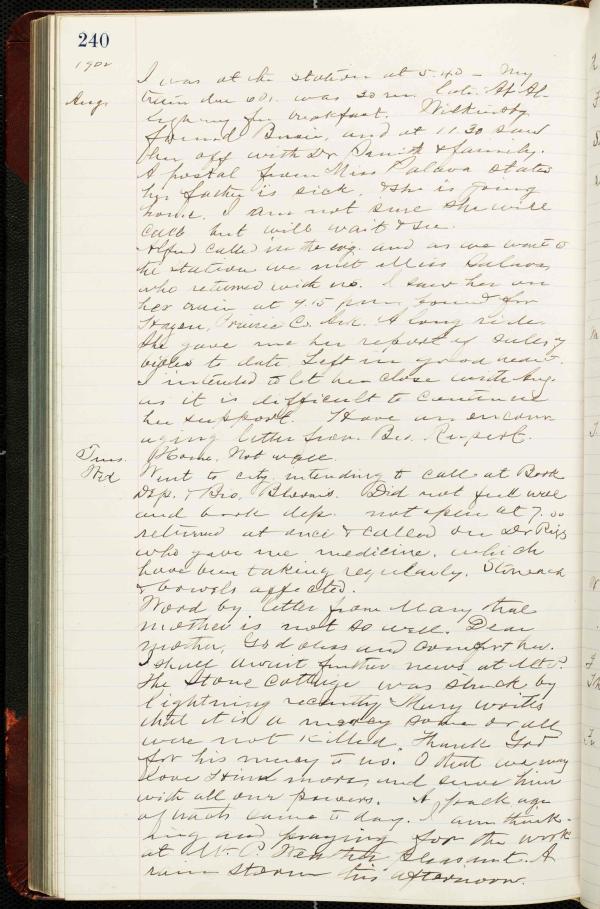 240
1902
I was at the station at 5.40 - My
Aug. train due 601. was 20 min late. At Al-
legheny for breakfast. Wilkinsby
found Susie, and at 11.30 saw
her off with Dr Smith & family.
A postal from Miss Palava states
her father is sick, & she is going
home. I am not sure she will
call but will wait & see.
Alfred called in the evg. and as we went to
the station we met Miss Palava,
who returned with us. I saw her on
her train at 7.15 pm bound for
Hazen, Prairie Co. Ark. A long ride.
She gave me her report of sales of
bibles to date. Left in good
I intended to let her close with Aug.
as it is difficult to continue
her support. Have an encour
aging letter from Bro. Rupert.
Tues. Home. Not well.
Wed Went to city intending to call at Book
Dep. & Bro. Blooms. Did not feel well
and book dep. not open at 7.00
returned at once & called on Dr Rigs
who gave me medicine, which
have been taking regularly. Stomach
& bowels affected.
Word by letter from Mary that
mother is not so well. Dear
mother, God bless and comfort her.
I shall await further news at Mt. P.
The Stone Cottage was struck by
lightning recently Mary writes
that it is a mercy some or all
were not killed. Thank God
for his mercy to us. O that we may
love Him more, and serve him
with all our powers. A pack age
of tracts came to day. I am think-
ing and praying for the work
at Mt. P. Weather pleasant. A
rain storm this afternoon.